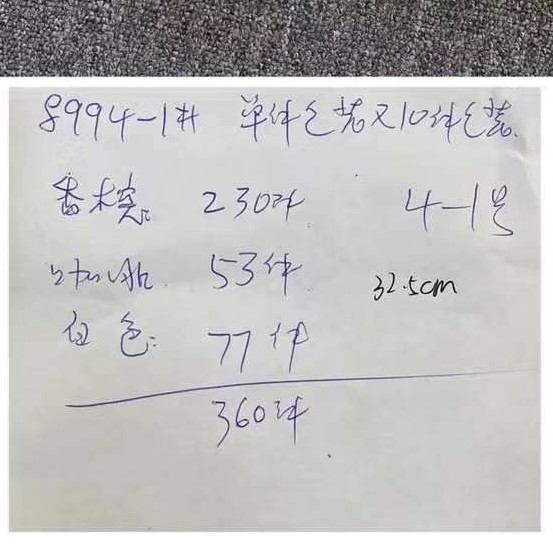 8994-1# 单件包装又10件包装.
香槟: 230件 4-1号
咖啡. 53件. 32.5cm
白色: 77件
360件